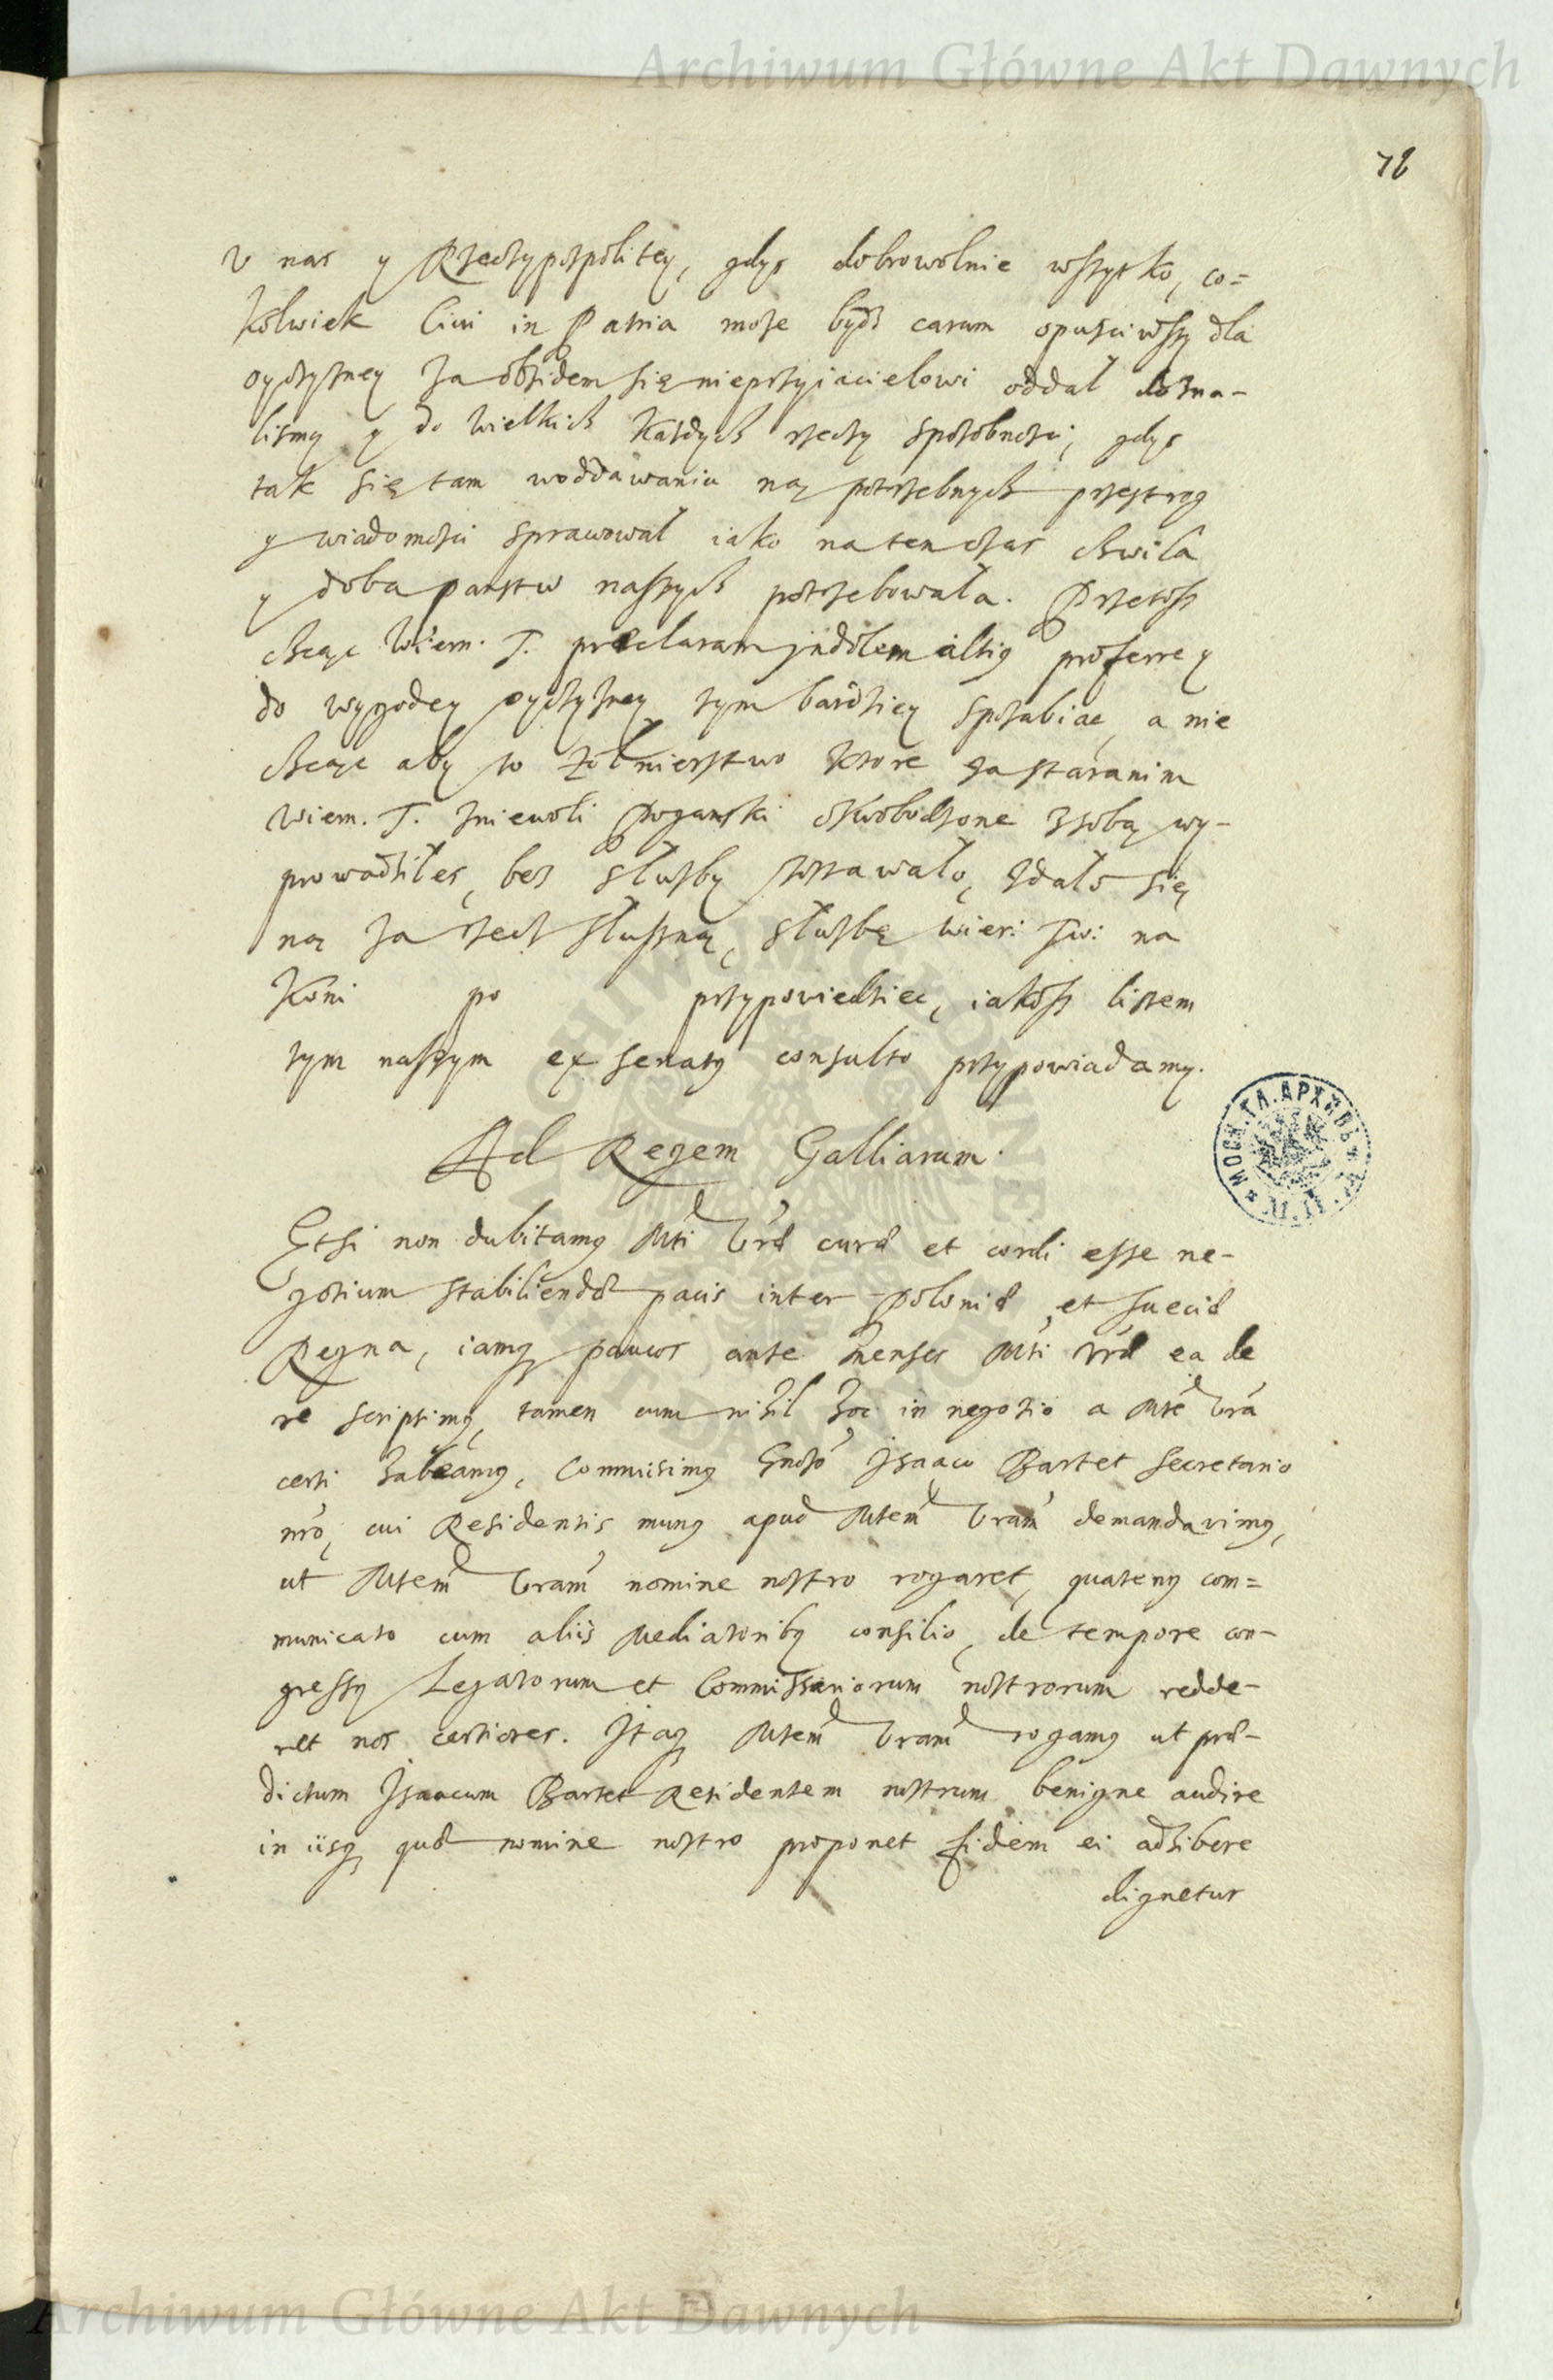 Archiwum Główne Akt Dawnych
78
V nas y Rzeczypospolitey, gdys dobrowolnie wszystko, co=
kolwiek Ciui in Patria moze bydz carum opusciwszy dla
oyczyzney za obsidem się nieprzyiacielowi oddał dozna-
lismy y do wielkich kazdych rzeczy sposobnosci, gdys
tak się tam w oddawaniu nąm potrzebnych przestrog
y wiadomosci sprawował iako na ten czas chwila
y doba panstw naszych potrzebowała. Przetosz
chcąc Wiern. T. præclaram jndolem altius proferre y
do wygodey oyczyzney tym bardziey sposabiac, a nie
chcąc aby to żołnierstwo ktore za staranim
Wiern. T. zniewoli Poganski oswobodzone z sobą wy-
prowadziłes, bez służby zostawało, zdało się
nąm za rzecz słuszną, służbę wier: Tw: na
Koni po przypowiedziec, iakosz listem
tym naszym ex senatus consulto przypowiadamy.
Ad Regem Galliarum.
Etsi non dubitamus Mti Vræ curæ et cordi esse ne-
gotium stabiliendæ pacis inter Poloniæ et Sueciæ
Regna, iamque paucos ante menses Mti Vræ ea de
re scripsimus, tamen cum nihil hoc in negotio a Mte Vra
certi habeamus, Commisimus Gnoso Isaaco Bartet Secretario
nro, cui Residentis munus apud Mtem Vram demandavimus,
ut Mtem Vram nomine nostro rogaret, quatenus com=
municato cum aliis Mediatoribus consilio, de tempore con-
gressus Legatorum et Commissariorum nostrorum redde-
ret nos certiores. Itaque Mtem Vram rogamus ut præ-
dictum Isaacum Bartet Residentem nostrum benigne audire
in iisque quæ nomine nostro proponet fidem ei adhibere
dignetur
МОСК. ГЛ. АРХИВЪ
ARCHIWUM GŁÓWNE AKT DAWNYCH
Archiwum Główne Akt Dawnych